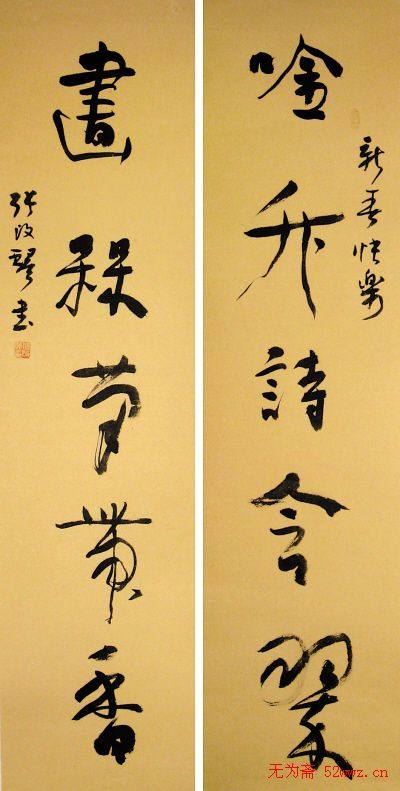 吟竹詩含翠
新春快樂
畫梅筆帶香
張改琴書
无为斋 52wwz.cn